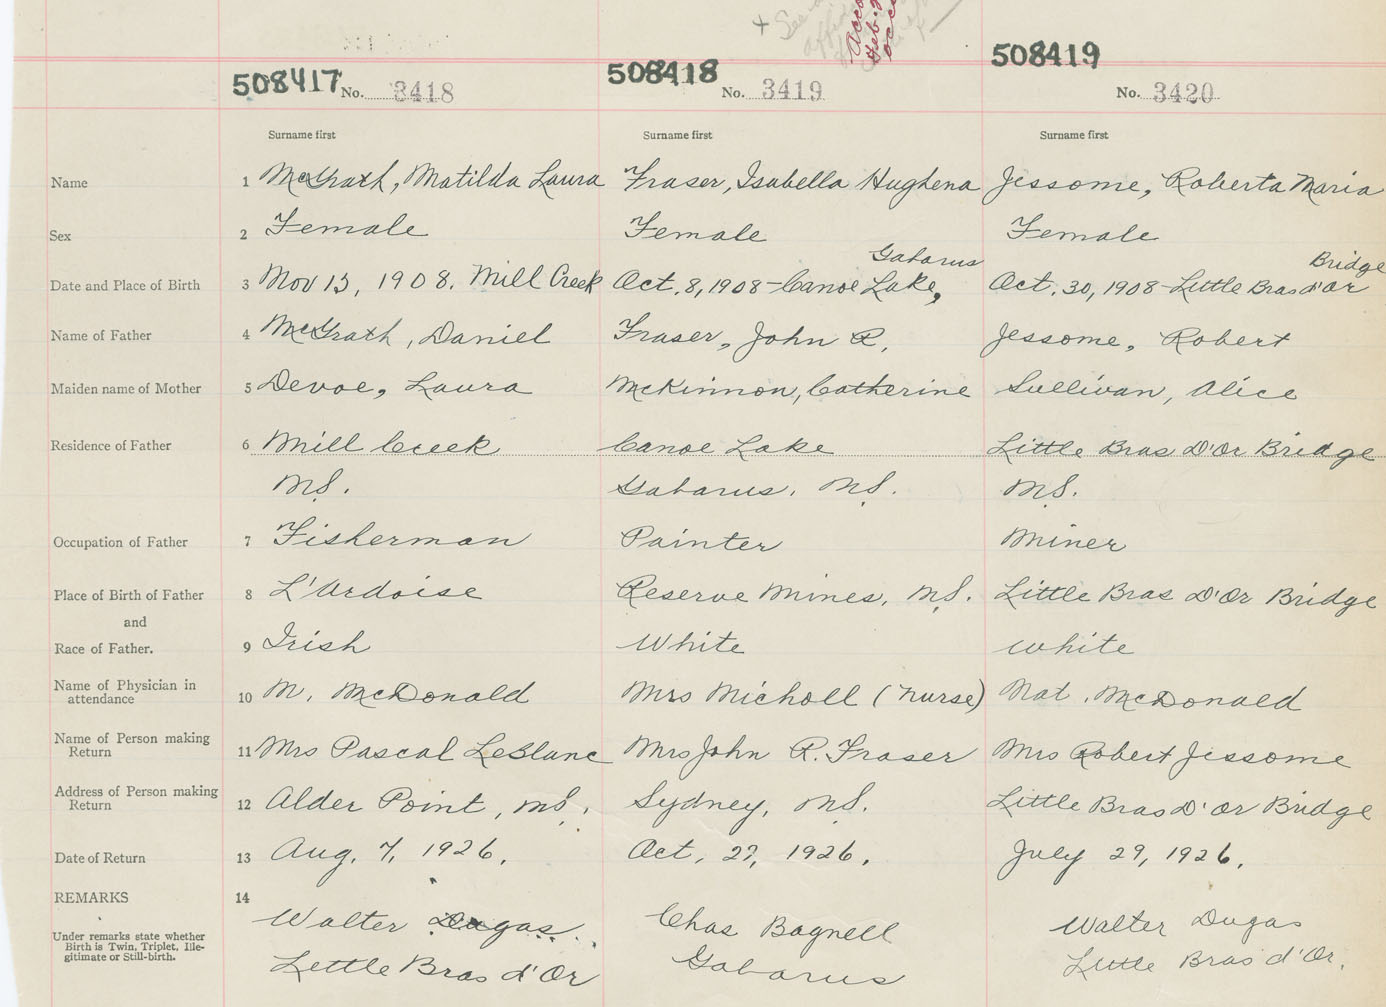 508417 No. 3418 508418 No. 3419 508419 No. 3420
Surname first Surname first Surname first
Name 1 McGrath, Matilda Laura Fraser, Isabella Hughena Jessome, Roberta Maria
Sex 2 Female Female Female
Gabarus Bridge
Date and Place of Birth 3 Nov 13, 1908. Mill Creek Oct. 8, 1908 - Canoe Lake, Oct. 30, 1908 - Little Bras d'Or
Name of Father 4 McGrath, Daniel Fraser, John R. Jessome, Robert
Maiden name of Mother 5 Devoe, Laura McKinnon, Catherine Sullivan, Alice
Residence of Father 6 Mill Creek Canoe Lake Little Bras D'Or Bridge
N.S. Gabarus, N.S. N.S.
Occupation of Father 7 Fisherman Painter Miner
Place of Birth of Father 8 L'Ardoise Reserve Mines, N.S. Little Bras D'Or Bridge
and
Race of Father. 9 Irish White White
Name of Physician in
attendance 10 M. McDonald Mrs Nicholl (Nurse) Nat. McDonald
Name of Person making
Return 11 Mrs Pascal LeBlanc Mrs John R. Fraser Mrs Robert Jessome
Address of Person making
Return 12 Alder Point, N.S. Sydney, N.S. Little Bras D'Or Bridge
Date of Return 13 Aug. 7, 1926. Oct. 27, 1926. July 29, 1926.
REMARKS 14
Walter Dugas Chas Bagnell Walter Dugas
Under remarks state whether
Birth is Twin, Triplet, Ille-
gitimate or Still-birth.
Little Bras d'Or Gabarus Little Bras d'Or.